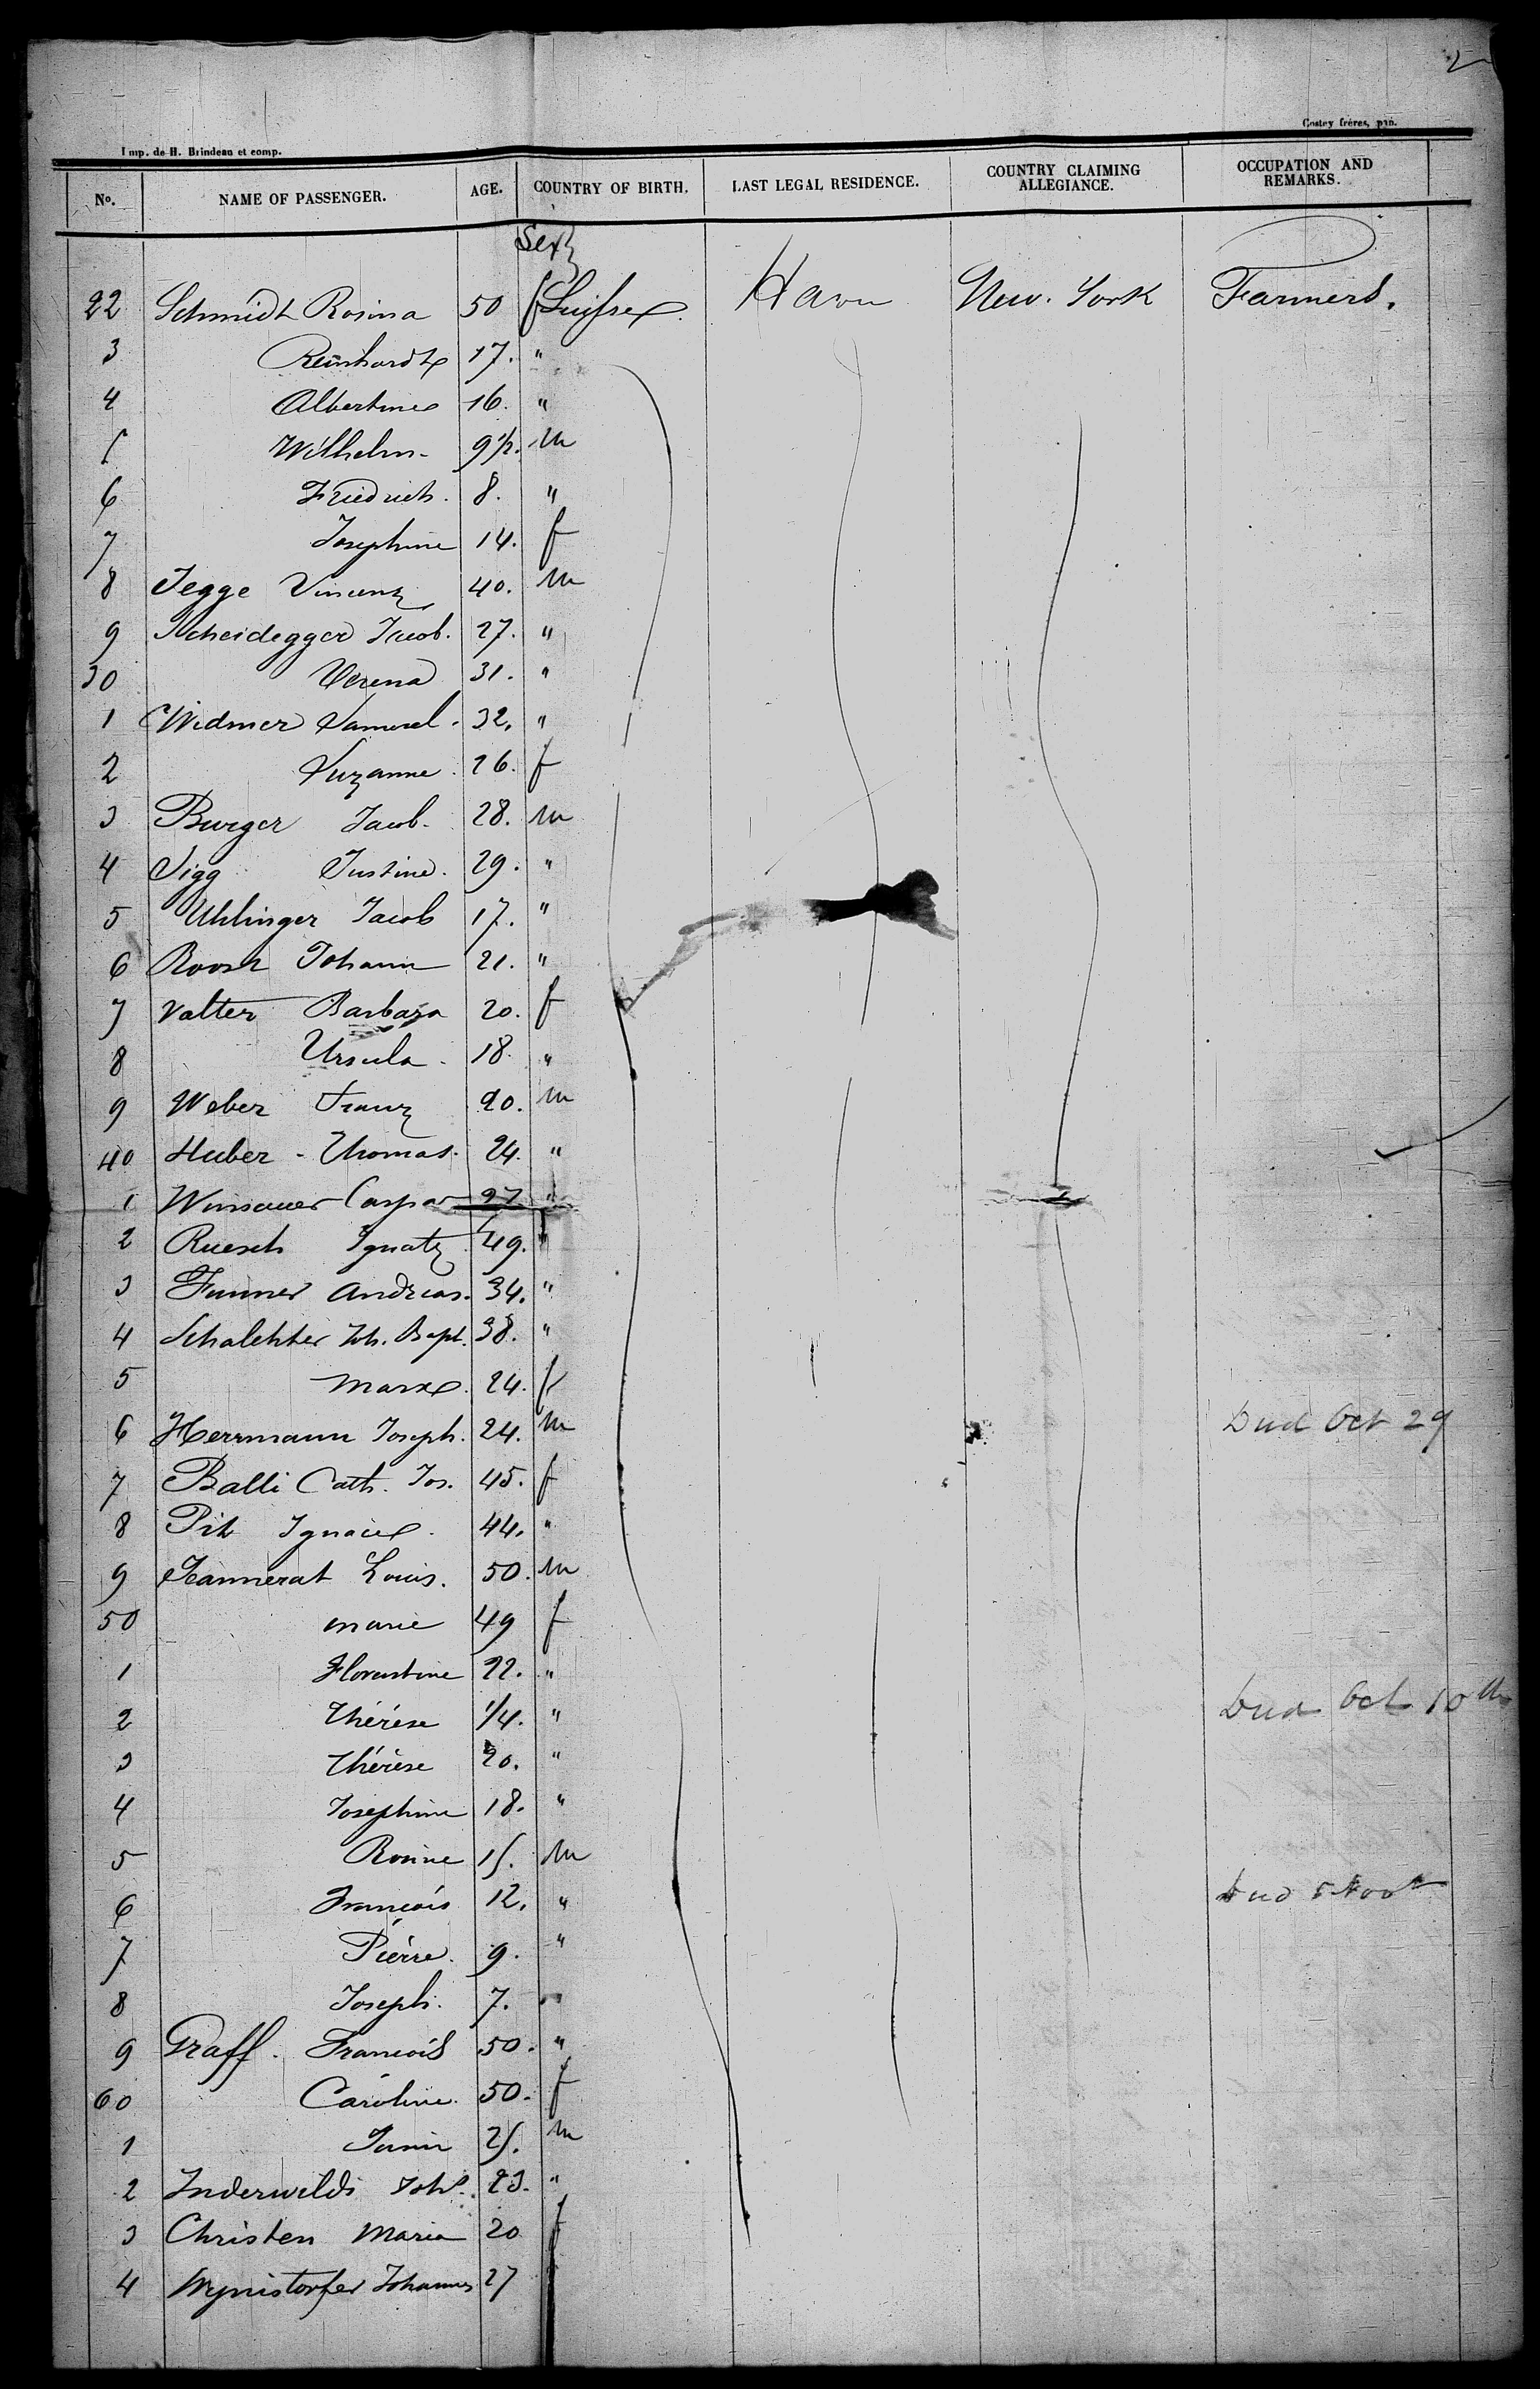 2
Imp. de H. Brindeau et comp.
Costey frères, pap.
No. NAME OF PASSENGER. AGE. COUNTRY OF BIRTH. LAST LEGAL RESIDENCE. COUNTRY CLAIMING ALLEGIANCE. OCCUPATION AND REMARKS.
Sex
22 Schmidt Rosina 50 f Suisse Havre New-York Farmers.
3 Reinhardt 17. "
4 Albertine 16. "
5 Wilhelm 9 1/2. m
6 Friedrich. 8. "
7 Josephine 14. f
8 Jegge Vincenz 40. m
9 Scheidegger Jacob. 27. "
30 Verena 31. "
1 Widmer Samuel. 32. "
2 Suzanne. 26. f
3 Burger Jacob. 28. m
4 Sigg Justine. 29. "
5 Uhlinger Jacob 17. "
6 Roost Johann 21. "
7 Valter Barbara 20. f
8 Ursula. 18. "
9 Weber Franz 20. m
40 Huber - Thomas. 24. "
1 Winsauer Caspar 27 "
2 Ruesch Ignatz 49. "
3 Andreas. 34. "
4 Schalchter Joh. Bapt. 38. "
5 24. f
6 Herrmann Joseph. 24. m Died Oct 29
7 Balli Cath. Jos. 45. f
8 Pit Ignace. 44. "
9 Jeannerat Louis. 50. m
50 marie 49 f
1 Florentine 22. "
2 Thérèse 1/4. " Died Oct 10th
3 Thérèse 20. "
4 Josephine 18. "
5 Rosine 15. m
6 François 12. " Died
7 Pierre. 9. "
8 Joseph. 7. "
9 Graff. François 50. "
60 Caroline. 50. f
1 25. m
2 Inderwildi Joh. 23. "
3 Christen Maria 20 f
4 Wynistorfer Johannes 27